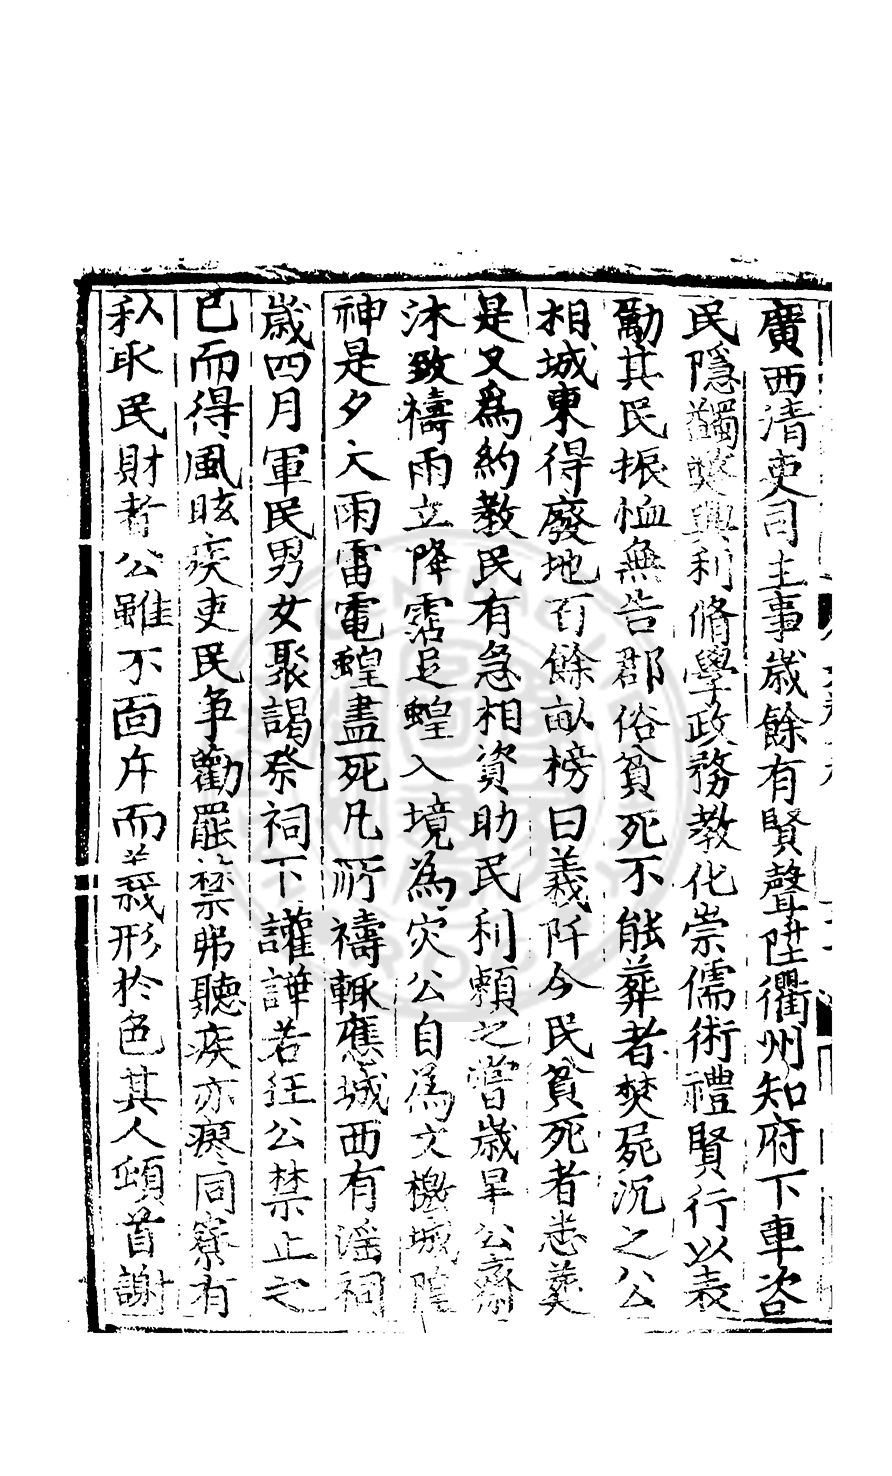 廣西清吏司主事歲餘有賢聲陞衢州知府下車咨
民隱蠲弊興利脩學政務教化崇儒術禮賢行以表
勵其民振恤無告郡俗貧死不能葬者焚屍沉之公
相城東得廢地百餘畝榜曰義阡令民貧死者悉葬
是又為約教民有急相資助民利賴之嘗歲旱公齋
沐致禱雨立降霑足蝗入境為灾公自為文檄城隍
神是夕大雨雷電蝗盡死凡所禱輒應城西有淫祠
歲四月軍民男女聚謁祭祠下讙譁若狂公禁止之
已而得風眩疾吏民争勸罷禁弗聽疾亦瘳同寮有
私取民財者公雖不面斥而義形於色其人頓首謝